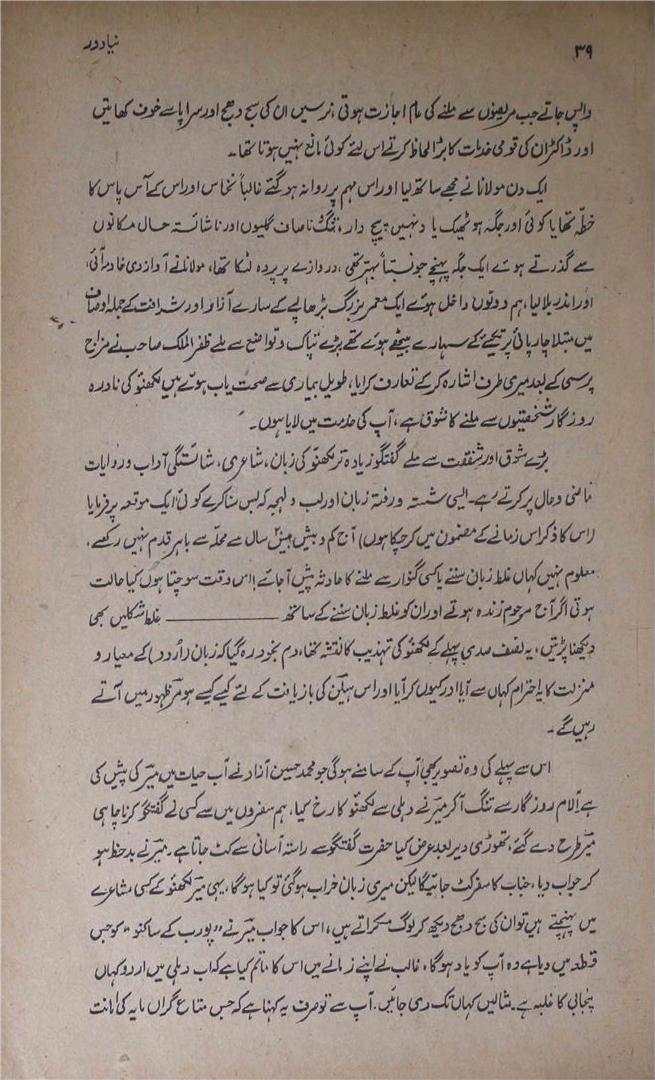 ۳۹
نیا دور
واپس جاتے جب مریضوں سے ملنے کی عام اجازت ہوتی، نرسیں ان کی سج دھج اور سراپا سے خوف کھاتیں
اور ڈاکٹر ان کی قومی خدمات کا بڑا لحاظ کرتے اس لئے کوئی مانع نہیں ہوتا تھا۔
ایک دن مولانا نے مجھے ساتھ لیا اور اس مہم پر روانہ ہو گئے غالباً نخاس اور اس کے آس پاس کا
خطہ تھا یا کوئی اور جگہ ہو ٹھیک یاد نہیں، پیچ دار، تنگ و ناصاف گلیوں اور ناشائستہ حال مکانوں
سے گذرتے ہوئے ایک جگہ پہنچے جو نسبتاً بہتر تھی، دروازے پر پردہ لٹکا تھا، مولانا نے آواز دی خادمہ آئی،
اور اندر بلا لیا، ہم دونوں داخل ہوئے ایک معمر بزرگ بڑھاپے کے سارے آثار اور شرافت کے جملہ اوصاف
میں مبتلا چارپائی پر تکیے کے سہارے بیٹھے ہوئے تھے بڑے تپاک و تواضع سے ملے ظفر الملک صاحب نے مزاج
پرسی کے بعد میری طرف اشارہ کر کے تعارف کرایا، طویل بیماری سے صحت یاب ہوئے ہیں لکھنؤ کی نادرہ
روزگار شخصیتوں سے ملنے کا شوق ہے، آپ کی خدمت میں لایا ہوں۔
بڑے شوق اور شفقت سے ملے گفتگو زیادہ تر لکھنؤ کی زبان، شاعری، شائستگی آداب و روایات
ماضی و حال پر کرتے رہے۔ ایسی شستہ و رفتہ زبان اور لب و لہجہ کہ بس سنا کرے کوئی، ایک موقعہ پر فرمایا
(اس کا ذکر اس زمانے کے مضمون میں کر چکا ہوں) آج کم و بیش بیس سال سے محلہ سے باہر قدم نہیں رکھے،
معلوم نہیں کہاں غلط زبان سننے یا کسی گنوار سے ملنے کا حادثہ پیش آ جائے! اس وقت سوچتا ہوں کیا حالت
ہوتی اگر آج مرحوم زندہ ہوتے اور ان کو غلط زبان سننے کے ساتھ ــــــــــــ غلط شکلیں بھی
دیکھنا پڑتیں، یہ نصف صدی پہلے کے لکھنؤ کی تہذیب کا نقشہ تھا، دم بخود رہ گیا کہ زبان (اردو) کے معیار و
منزلت کا یہ احترام کہاں سے آیا اور کیوں کر آیا اور اس ہیکل کی بازیافت کے لئے کیسے کیسے ہومر ظہور میں آتے
رہیں گے۔
اس سے پہلے کی وہ تصویر بھی آپ کے سامنے ہوگی جو محمد حسین آزاد نے آب حیات میں میرؔ کی پیش کی
ہے آلام روزگار سے تنگ آکر میرؔ نے دہلی سے لکھنؤ کا رخ کیا، ہم سفروں میں سے کسی نے گفتگو کرنا چاہی
میرؔ طرح دے گئے، تھوڑی دیر بعد عرض کیا حضرت گفتگو سے راستہ آسانی سے کٹ جاتا ہے۔ میرؔ نے بد حظ ہو
کر جواب دیا، جناب کا سفر کٹ جائیگا لیکن میری زبان خراب ہو گئی تو کیا ہوگا، یہی میرؔ لکھنؤ کے کسی مشاعرے
میں پہنچتے ہیں تو ان کی سج دھج دیکھ کر لوگ مسکراتے ہیں، اس کا جواب میرؔ نے ”پورب کے ساکنو“ کو جس
قطعہ میں دیا ہے وہ آپ کو یاد ہوگا، غالب نے اپنے زمانے میں اس کا ماتم کیا ہے کہ اب دہلی میں اردو کہاں
پنجابی کا غلبہ ہے۔ مثالیں کہاں تک دی جائیں، آپ سے تو صرف یہ کہنا ہے کہ جس متاع گراں مایہ کی امانت